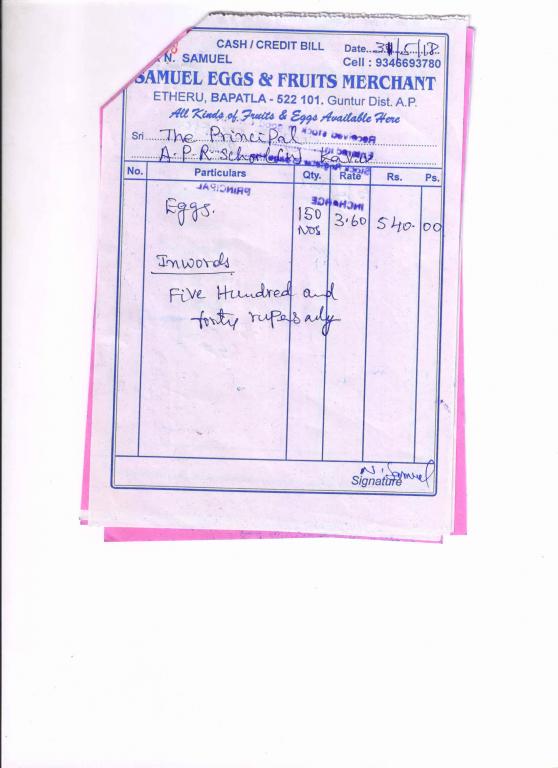 CASH / CREDIT BILL
N. SAMUEL
Date 31/5/18
Cell : 9346693780
SAMUEL EGGS & FRUITS MERCHANT
ETHERU, BAPATLA - 522 101. Guntur Dist. A.P.
All Kinds of Fruits & Eggs Available Here
Sri The Principal
A.P.R School
No. Particulars Qty. Rate Rs. Ps.
PRINCIPAL INCHARGE
Eggs. 150 3.60 540. 00
Nos
Inwords
Five Hundred and
forty rupes only
N. Samuel
Signature